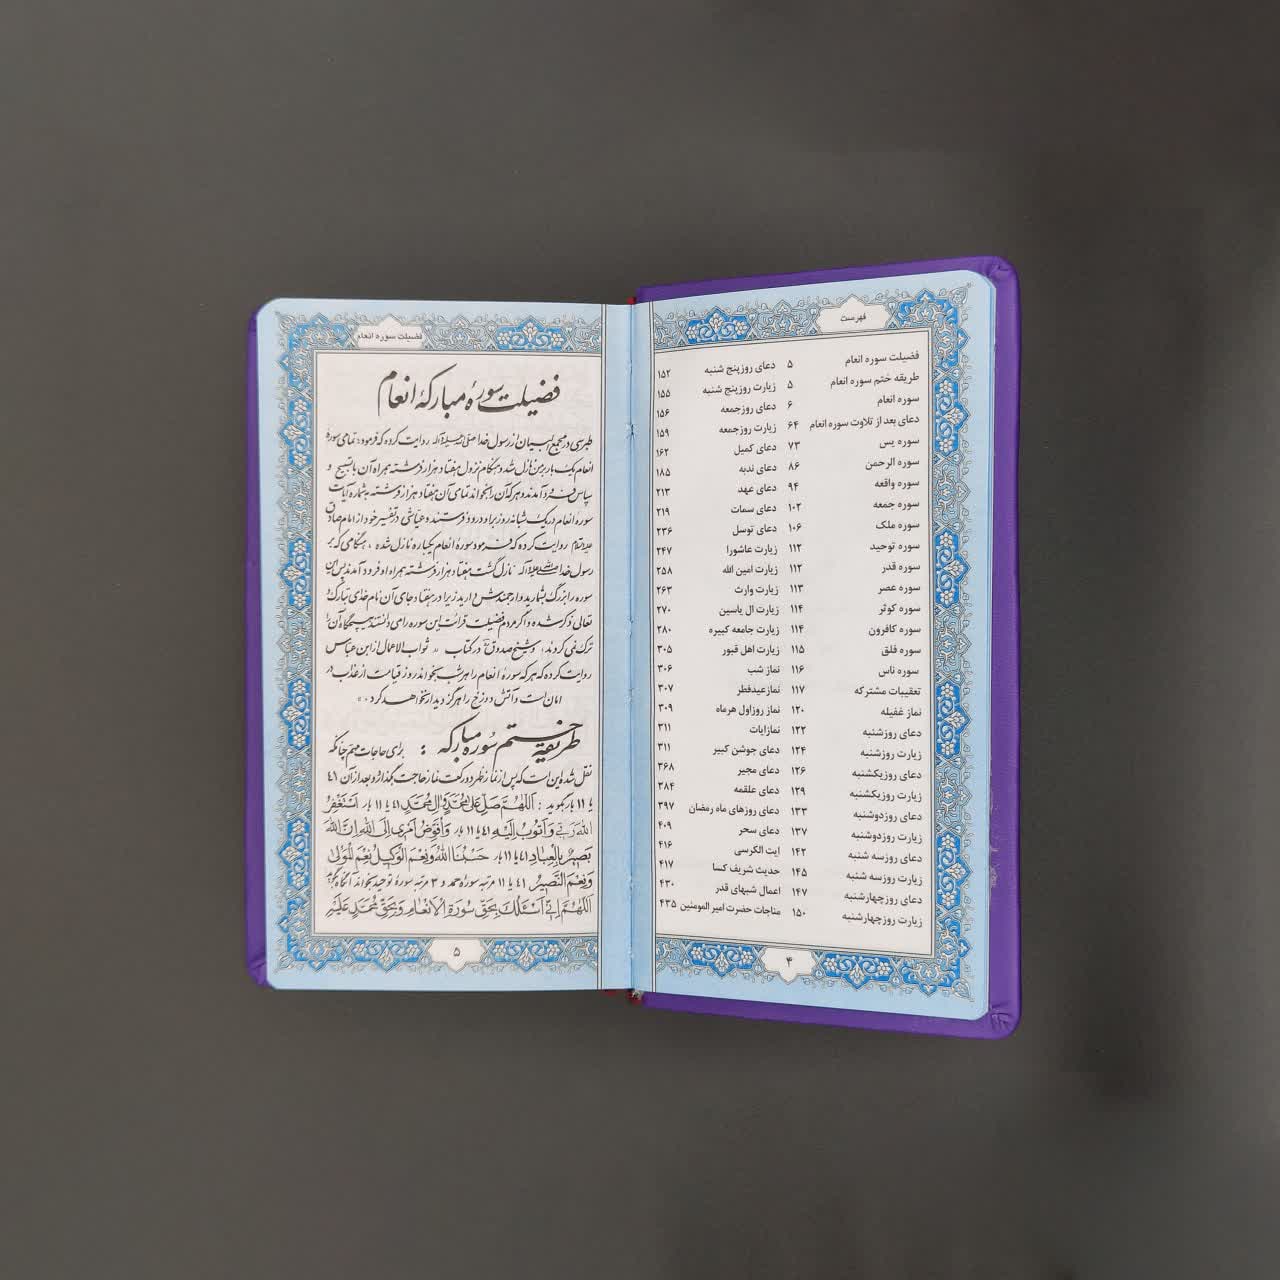 فهرست
فضیلت سوره انعام ۵
طریقه ختم سوره انعام ۵
سوره انعام ۶
دعای بعد از تلاوت سوره انعام ۶۴
سوره یس ۷۳
سوره الرحمن ۸۶
سوره واقعه ۹۴
سوره جمعه ۱۰۲
سوره ملک ۱۰۶
سوره توحید ۱۱۲
سوره قدر ۱۱۲
سوره عصر ۱۱۳
سوره کوثر ۱۱۴
سوره کافرون ۱۱۴
سوره فلق ۱۱۵
سوره ناس ۱۱۶
تعقیبات مشترکه ۱۱۷
نماز غفیله ۱۲۰
دعای روزشنبه ۱۲۲
زیارت روزشنبه ۱۲۴
دعای روزیکشنبه ۱۲۶
زیارت روزیکشنبه ۱۲۹
دعای روزدوشنبه ۱۳۳
زیارت روزدوشنبه ۱۳۷
دعای روزسه شنبه ۱۴۲
زیارت روزسه شنبه ۱۴۵
دعای روزچهارشنبه ۱۴۷
زیارت روزچهارشنبه ۱۵۰
دعای روزپنج شنبه ۱۵۲
زیارت روزپنج شنبه ۱۵۵
دعای روزجمعه ۱۵۶
زیارت روزجمعه ۱۵۹
دعای کمیل ۱۶۲
دعای ندبه ۱۸۵
دعای عهد ۲۱۳
دعای سمات ۲۱۹
دعای توسل ۲۳۶
زیارت عاشورا ۲۴۷
زیارت امین الله ۲۵۸
زیارت وارث ۲۶۳
زیارت ال یاسین ۲۷۰
زیارت جامعه کبیره ۲۸۰
زیارت اهل قبور ۳۰۵
نماز شب ۳۰۶
نمازعیدفطر ۳۰۷
نماز روزاول هرماه ۳۰۹
نمازایات ۳۱۱
دعای جوشن کبیر ۳۱۱
دعای مجیر ۳۶۸
دعای علقمه ۳۸۴
دعای روزهای ماه رمضان ۳۹۷
دعای سحر ۴۰۹
ایت الکرسی ۴۱۶
حدیث شریف کسا ۴۱۷
اعمال شبهای قدر ۴۳۰
مناجات حضرت امیر المومنین ۴۳۵
۴
فضیلت سوره انعام
فضیلت سورۀ مبارکۀ انعام
طبرسی در مجمع البیان از رسول خدا صلی الله علیه و آله روایت کرده که فرمود: تمامی سورۀ
انعام یک بار بر من نازل شد و هنگام نزول هفتاد هزار فرشته همراه آن با تسبیح و
سپاس فرود آمدند و هر که آن را بخواند تمامی آن هفتاد هزار فرشته بشماره آیات
سوره انعام در یک شبانه روز بر او درود فرستند و عیاشی در تفسیر خود از امام صادق
علیه السلام روایت کرده که فرمود سورۀ انعام یکباره نازل شده، هنگامی که بر
رسول خدا صلی الله علیه و آله نازل گشت هفتاد هزار فرشته همراه او فرود آمدند پس این
سوره را بزرگ بشمارید و ارجمندش دارید زیرا در هفتاد جای آن نام خدای تبارک و
تعالی ذکر شده و اگر مردم فضیلت قرائت این سوره را می دانستند هیچگاه آن را
ترک نمی کردند، و شیخ صدوق در کتاب «ثواب الاعمال از ابن عباس
روایت کرده که هر که سورۀ انعام را هر شب بخواند روز قیامت از عذاب در
امان است و آتش دوزخ را هرگز دیدار نخواهد کرد.»
طریقۀ ختم سوره مبارکه : برای حاجات مهم چنانکه
نقل شده این است که پس از نماز ظهر دو رکعت نماز حاجت بگذارد و بعد از آن ۴۱
یا ۱۱ بار بگوید : اَللّهُمَّ صَلِّ عَلی مُحَمَّدٍ وَ الِ مُحَمَّدٍ ۴۱ یا ۱۱ بار اَسْتَغْفِرُ
اللهَ رَبّی وَ اَتُوبُ اِلَیْهِ ۴۱ یا ۱۱ بار وَ اُفَوِّضُ اَمْری اِلَی اللهِ اِنَّ اللهَ
بَصیرٌ بِالْعِبادِ ۴۱ یا ۱۱ بار حَسْبُنَا اللهُ وَ نِعْمَ الْوَکیلُ نِعْمَ الْمَوْلی
وَ نِعْمَ النَّصیرُ ۴۱ یا ۱۱ مرتبه سورۀ حمد و ۳ مرتبه سورۀ توحید بخواند آنگاه بگوید
اَللّهُمَّ اِنّی اَسْئَلُکَ بِحَقِّ سُورَةِ الْاَنْعامِ وَ بِحَقِّ مُحَمَّدٍ عَلَیْهِ
۵